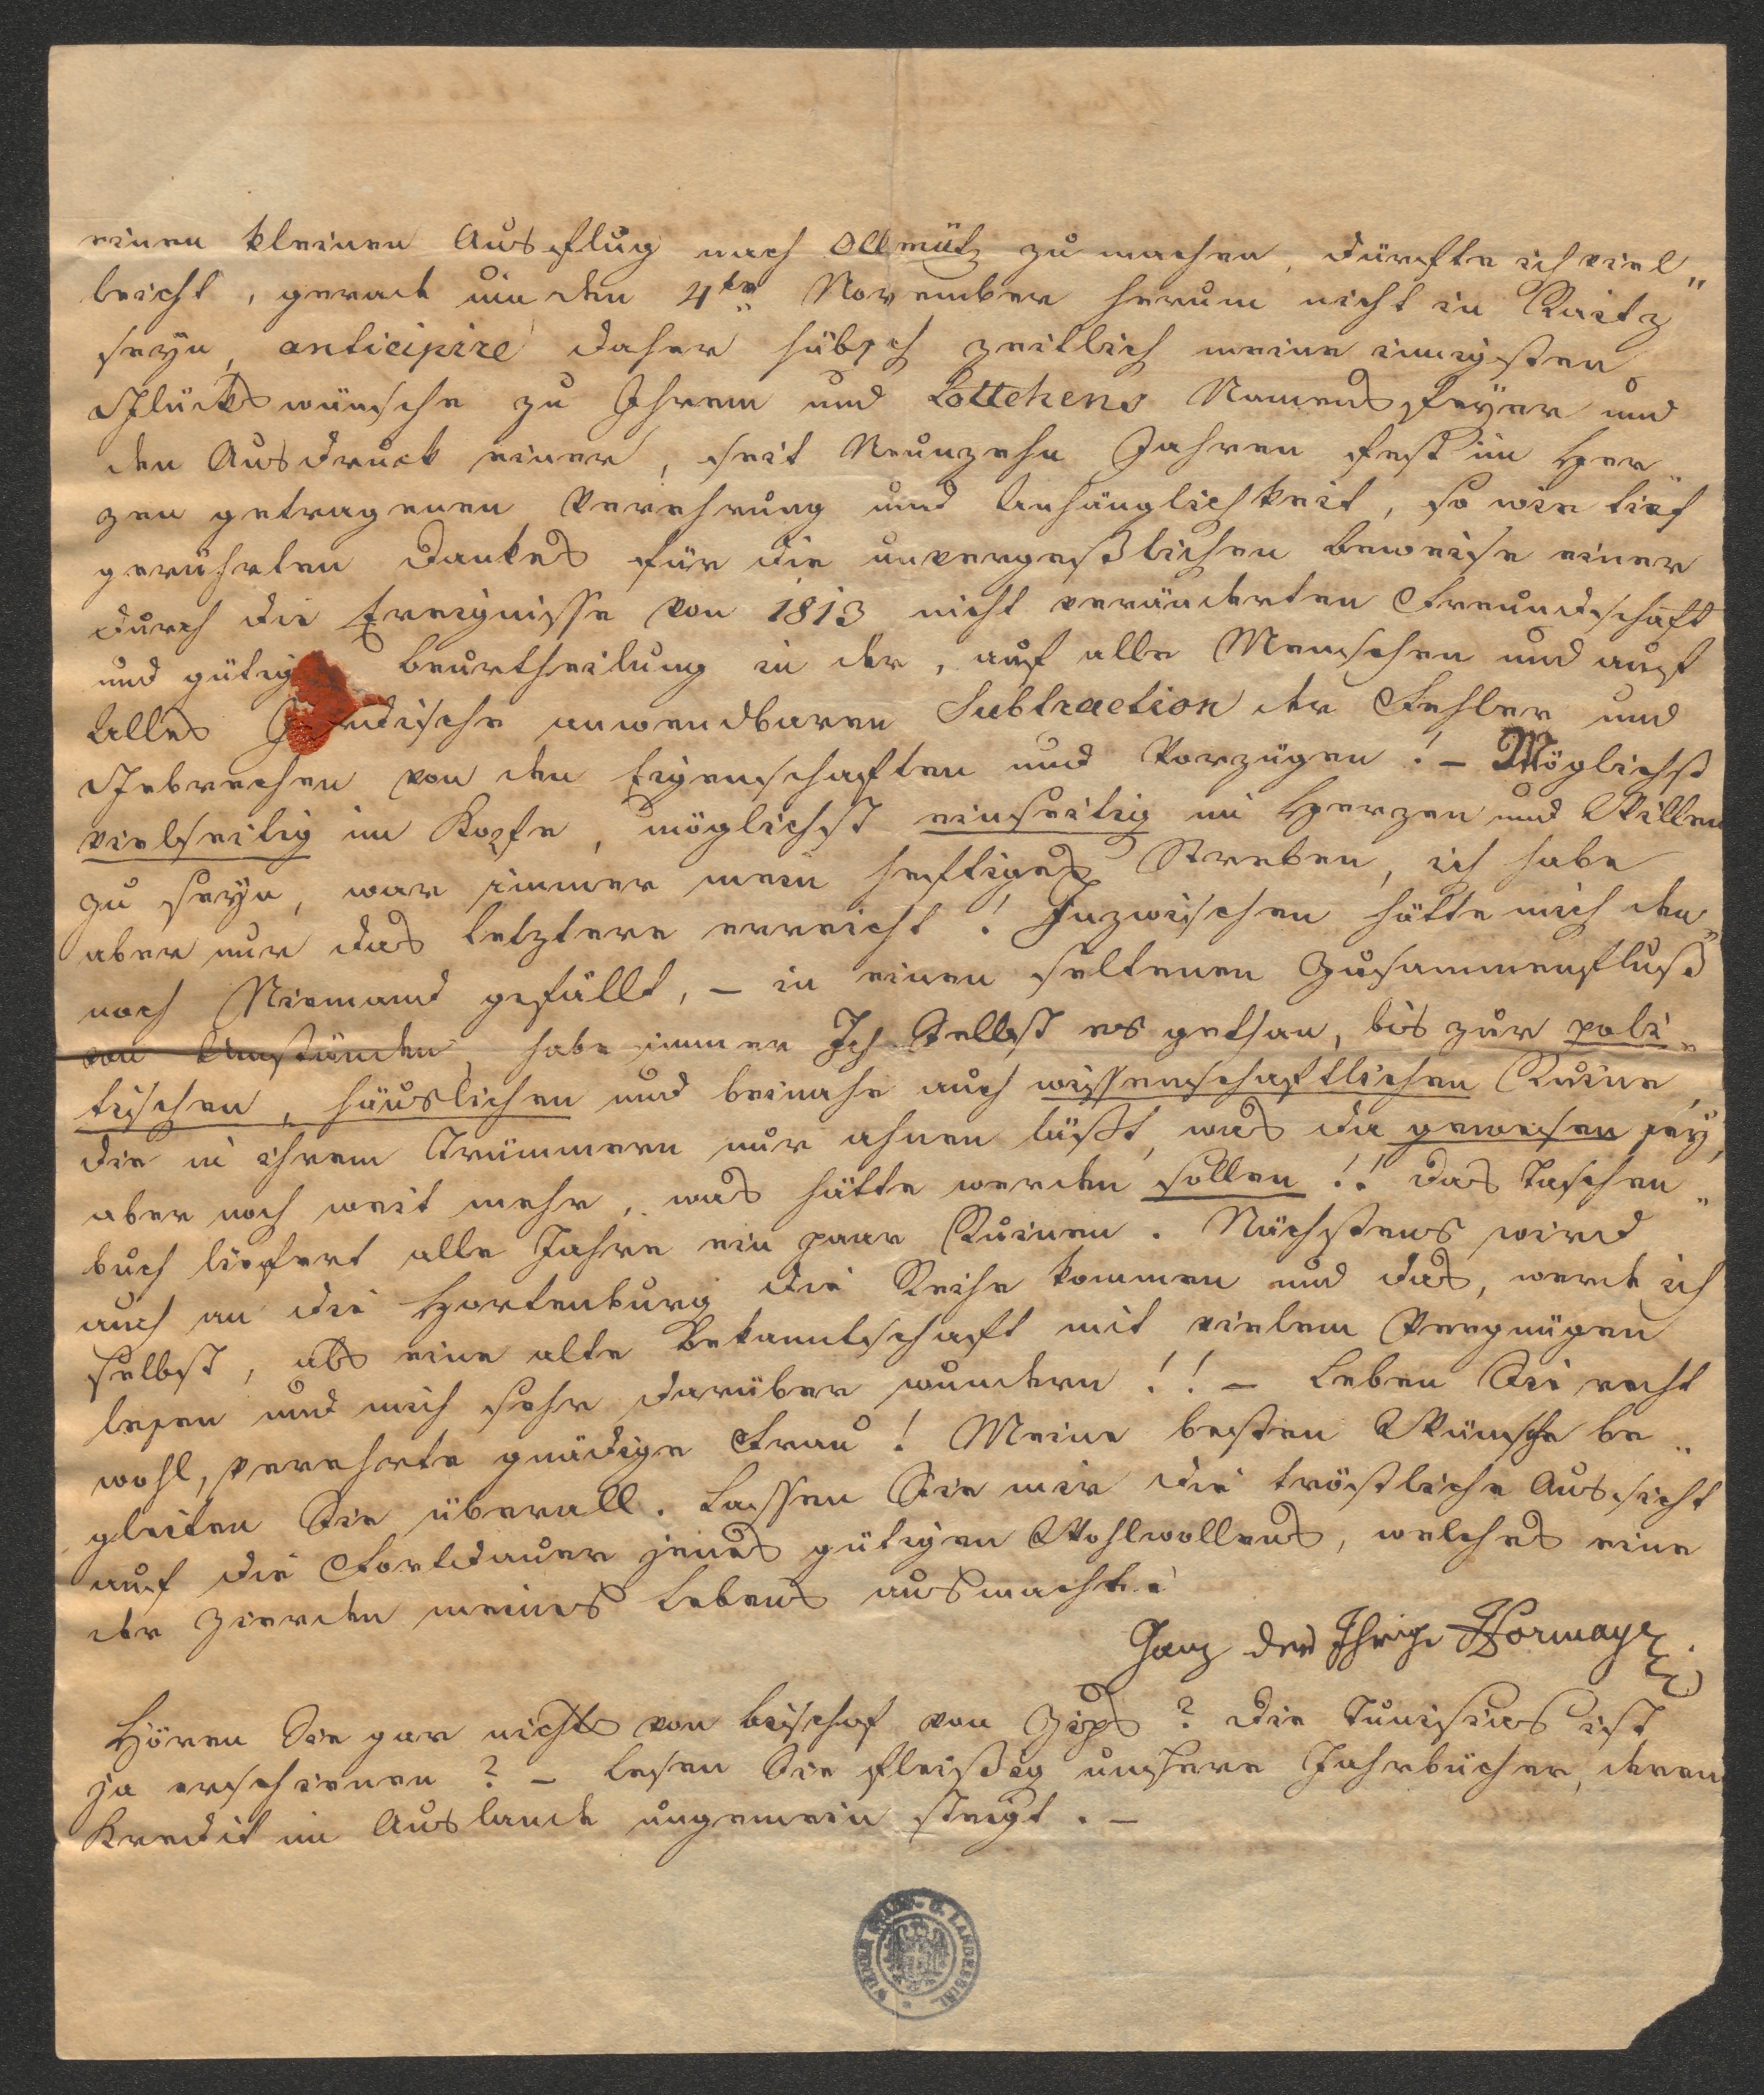 einen kleinen Ausflug nach Ollmütz zu machen, dürfte ich viel„
leicht, gerade um den 4ten November herum nicht in Raitz
seyn, anticipire daher hübsch zeitlich meine innigsten
Glückswünsche zu Ihrem und Lottchens Namensfeyer und
den Ausdruck einer, seit Neunzehn Jahren fest im Her„
zen getragenen Verehrung und Anhänglichkeit, so wie tief
gerührten Dankes für die unvergeßlichen Beweise einer
durch die Ereignisse von 1813 nicht veränderten Freundschaft
und gütig Beurtheilung in der, auf alle Menschen und auf
Alles Irrdische anwendbaren Subtraction der Fehler und
Gebrechen von den Eigenschaften und Vorzügen! – Möglichst
vielseitig im Kopfe, möglichst einseitig im Herzen und Willen
zu seyn, war immer mein heftiges Streben, ich habe
aber nur das letztere erreicht! Inzwischen hätte mich den„
noch Niemand gefällt, – in einen seltenen Zusammenfluß
von Umständen, habe immer Ich Selbst es gethan, bis zur poli„
tischen, häuslichen und beinahe auch wissenschaftlichen Ruine,
die in ihrem Trümmern nur ahnen läßt, was da gewesen sey,
aber noch weit mehr, was hätte werden sollen!! Das Taschen„
buch liefert alle Jahre ein paar Ruinen. Nächstens wird
auch an die Hartenburg die Reihe kommen und das, werde ich
selbst, als eine alte Bekanntschaft mit vielem Vergnügen
lesen und mich sehr darüber wundern!! – Leben Sie recht
wohl, verehrte gnädige Frau! Meine besten Wünsche be„
gleiten Sie überall. Lassen Sie mir die tröstliche Aussicht
auf die Fortdauer jenes gütigen Wohlwollens, welches eine
der Zierden meines Lebens ausmacht!
Ganz der Ihrige Hormayr
Hören Sie gar nichts von Bischof von Zips? Die Tunisias ist
ja erschienen? – Lesen Sie fleißig unsere Jahrbücher, deren
Kredit im Auslande ungemein steigt. –
WIENER STADT- U. LANDESBIBL.